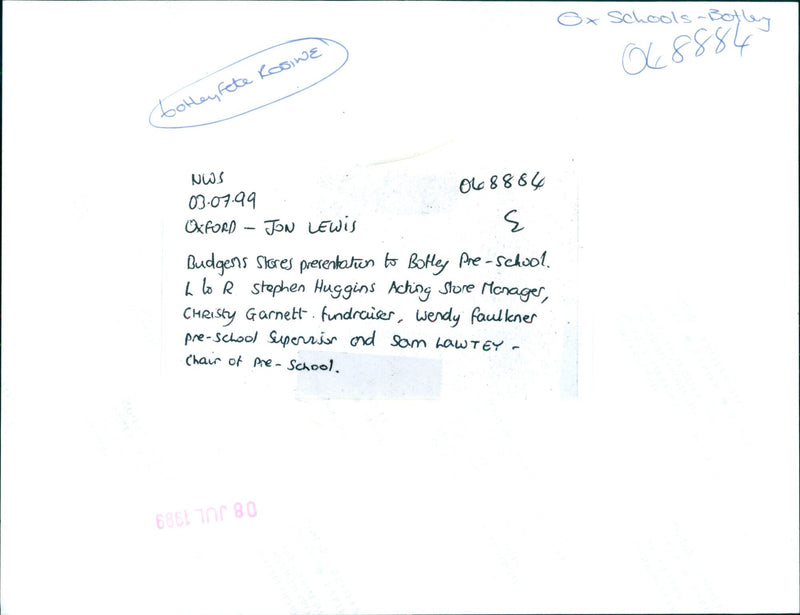 Ox Schools-Botley
048884
Botley Fete
NWS
048884
03.07.99
OXFORD - JON LEWIS
Budgens Stores presentation to Botley Pre-school.
L to R Stephen Huggins Acting Store Manager,
CHRISTY Garnett. fundraiser, Wendy Faulkner
pre-school Supervisor and Sam LAWTEY -
Chair of Pre-School.
08 JUL 1999